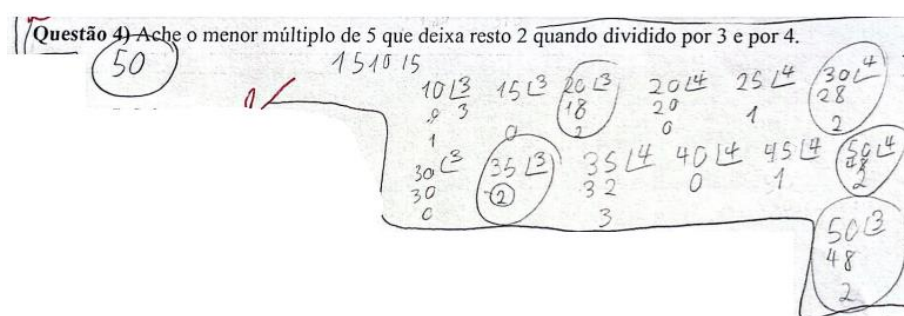 Questão 4) Ache o menor múltiplo de 5 que deixa resto 2 quando dividido por 3 e por 4.
50
1 5 10 15
10 3 15 3 20 3 20 4 25 4 30 4
0 3 18 20 28
1 0 2 0 1 2
30 3 35 3 35 4 40 4 45 4 50 4
30 2 32 0 1 48
0 3 2
50 3
48
2